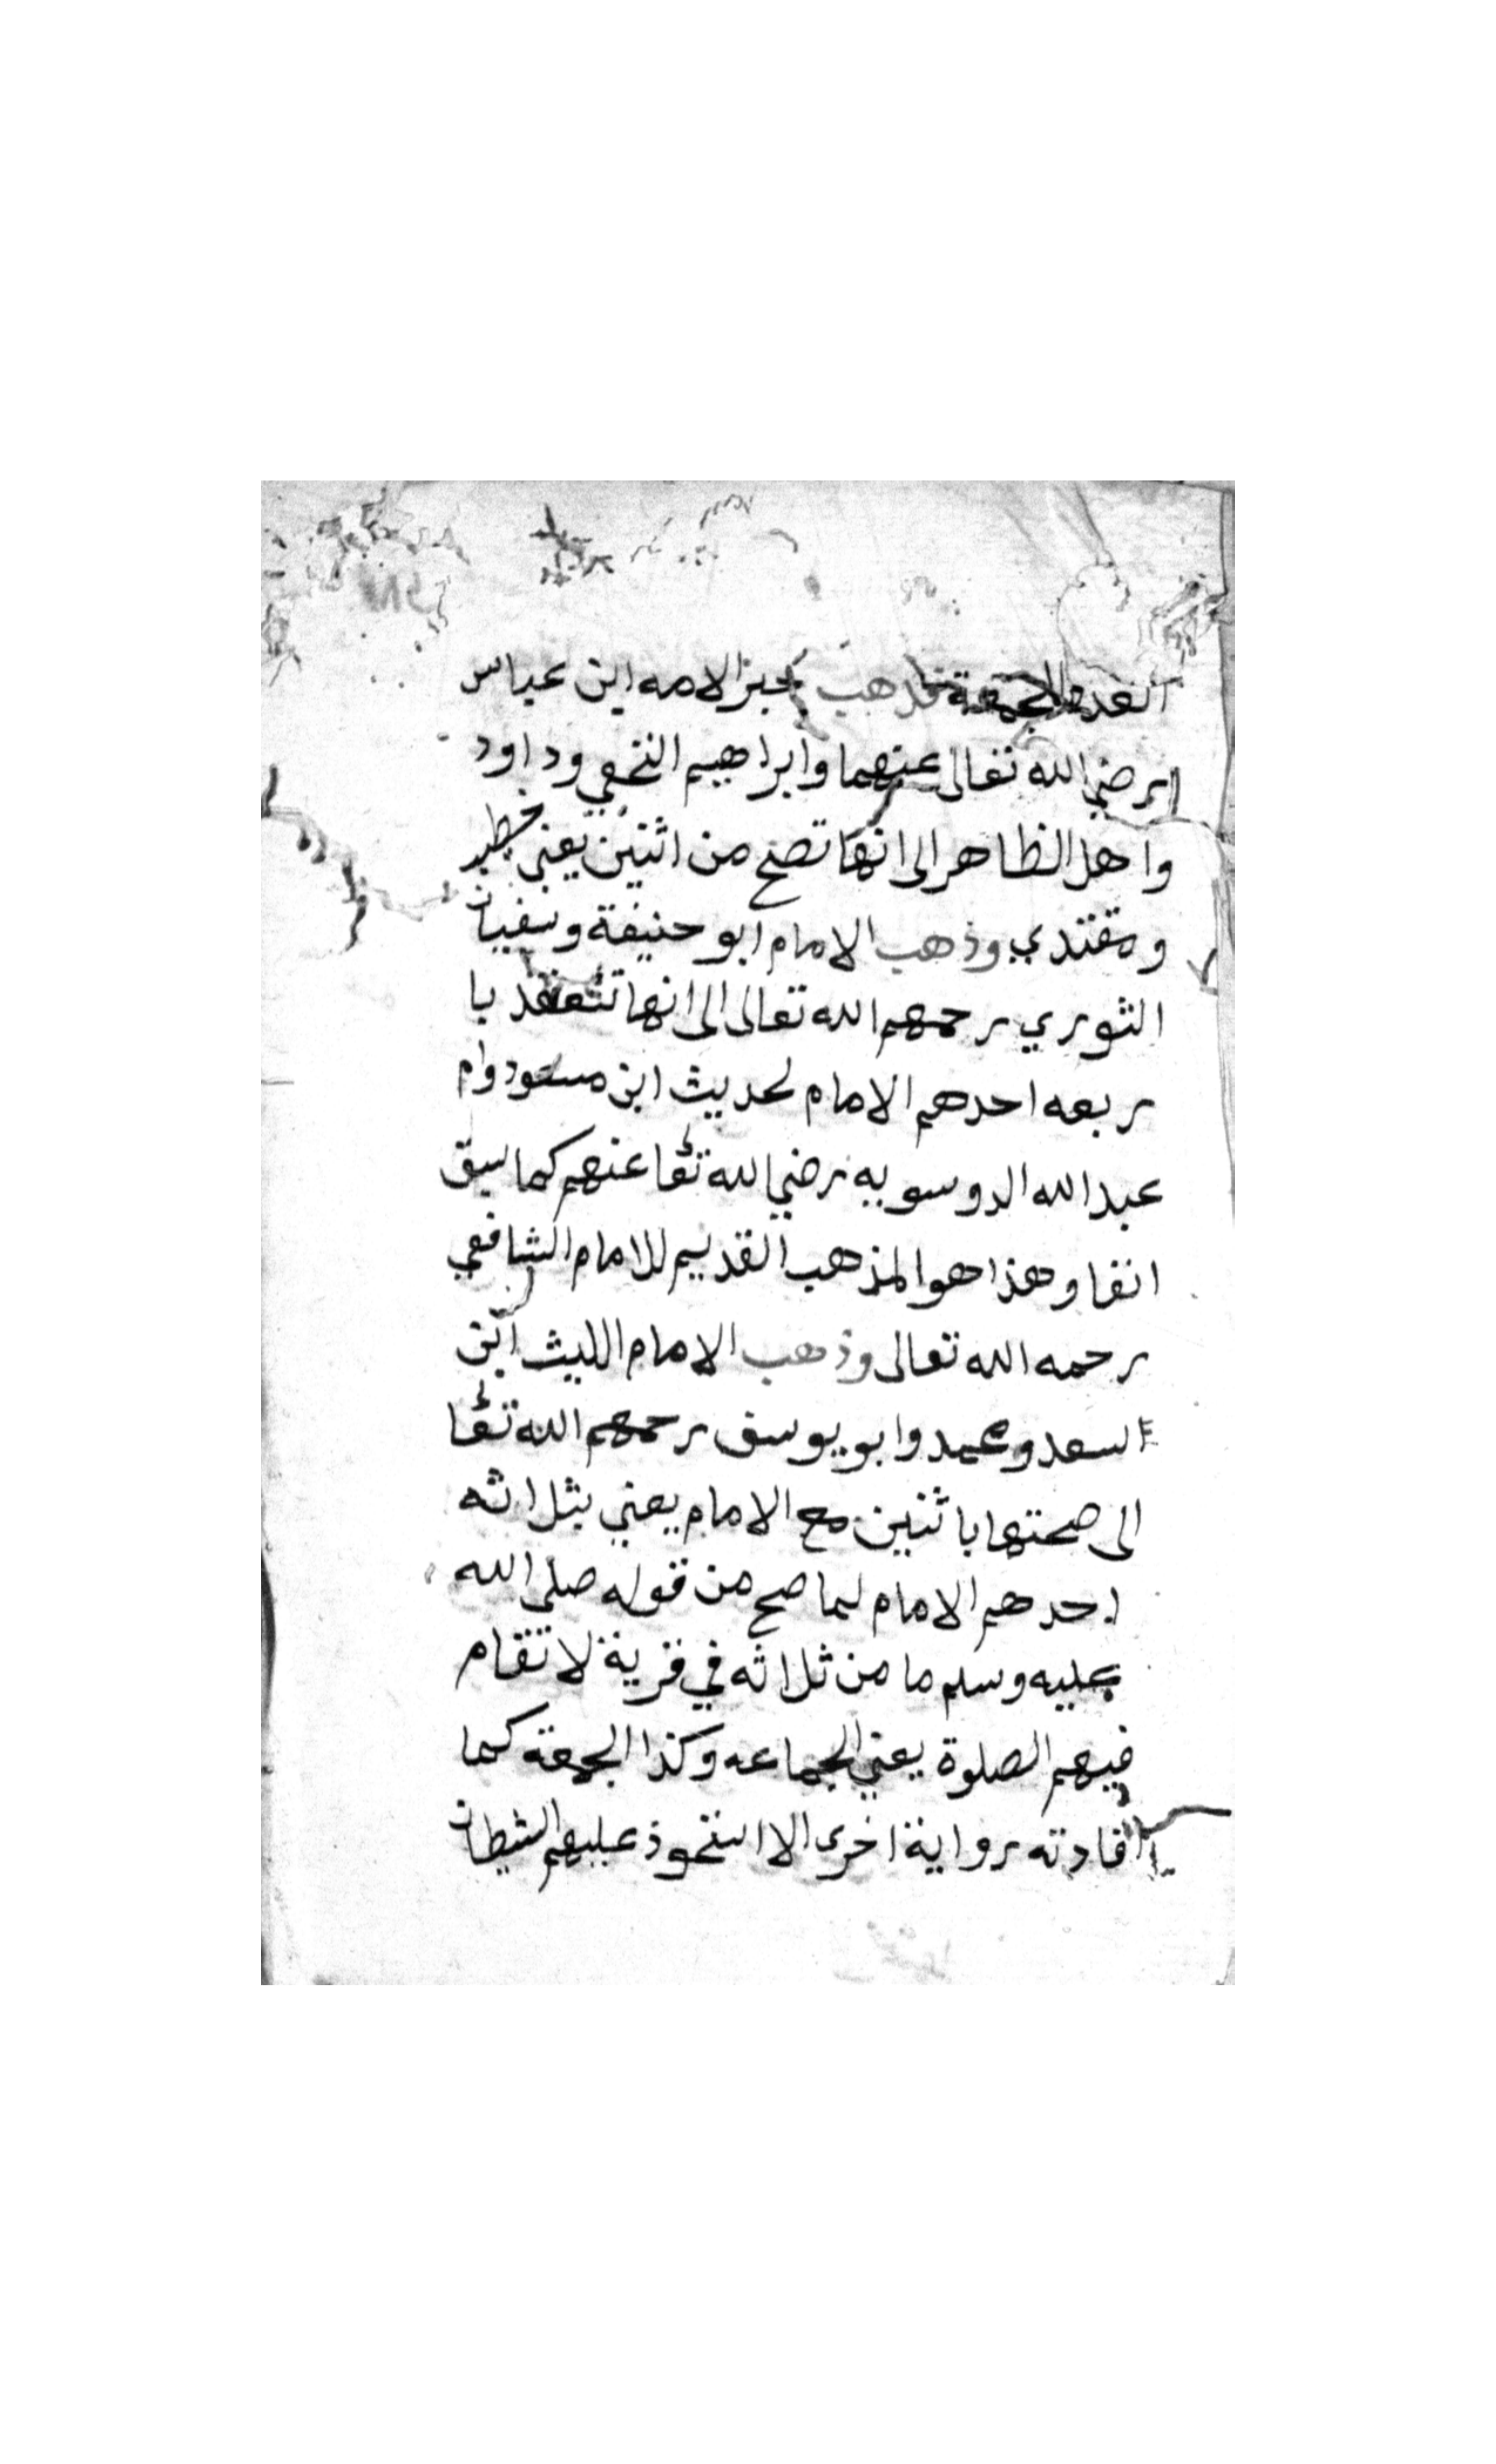 العدد الجمعة فذهب حبر الامه ابن عباس
رضي الله تعالى عنهما وابراهيم النخعي وداود
واهل الظاهر الى انها تصح من اثنين يعني خطيب
ومقتدي وذهب الامام ابو حنيفة وسفيان
الثوري رحمهم الله تعالى الى انها تنعقد با
ربعه احدهم الامام لحديث ابن مسعود وام
عبد الله الدوسويه رضي الله تعا عنهم كما سبق
انفا وهذا هو المذهب القديم للامام الشافعي
رحمه الله تعالى وذهب الامام الليث ابن
السعد ومحمد وابو يوسف رحمهم الله تعا
الى صحتها باثنين مع الامام يعني بثلاثه
احدهم الامام لما صح من قوله صلى الله
عليه وسلم ما من ثلاثه في قرية لا تقام
فيهم الصلوة يعني الجماعه وكذا الجمعة كما
افادته رواية اخرى الا استحوذ عليهم الشيطان